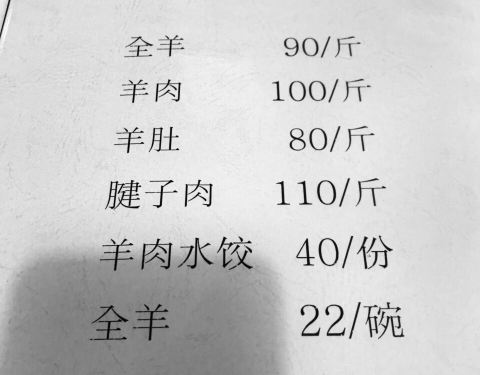 全羊 90/斤
羊肉 100/斤
羊肚 80/斤
腱子肉 110/斤
羊肉水饺 40/份
全羊 22/碗